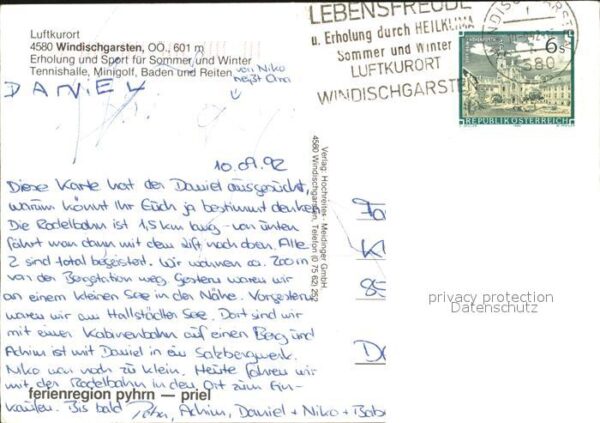 LEBENSFREUDE
u. Erholung durch HEILKLIMA
Sommer und Winter
LUFTKURORT
WINDISCHGARSTEN
WINDISCHGARSTEN
4580
6s
REPUBLIK ÖSTERREICH
Luftkurort
4580 Windischgarsten, OÖ., 601 m
Erholung und Sport für Sommer und Winter
Tennishalle, Minigolf, Baden und Reiten
von Niko
DANIEL
10.09.92
Diese Karte hat der Daniel ausgesucht,
warum könnt Ihr Euch ja bestimmt denken.
Die Rodelbahn ist 1,5 km lang - von unten
fährt man dann mit dem Lift nach oben. Alle
2 sind total begeistert. Wir wohnen ca. 200 m
von der Bergstation weg. Gestern waren wir
an einem kleinen See in der Nähe. Vorgestern
waren wir am Hallstädter See. Dort sind wir
mit einer Kabinenbahn auf einen Berg und
Achim ist mit Daniel in ein Salzbergwerk.
Niko war noch zu klein. Heute fahren wir
mit der Rodelbahn in den Ort zum Ein-
kaufen. Bis bald Petra, Achim, Daniel + Niko + Bab
ferienregion pyhrn — priel
Verlag: Hochreites - Meidinger GmbH
4580 Windischgarsten, Telefon (0 75 62) 252
Fa
K
85
privacy protection
Datenschutz